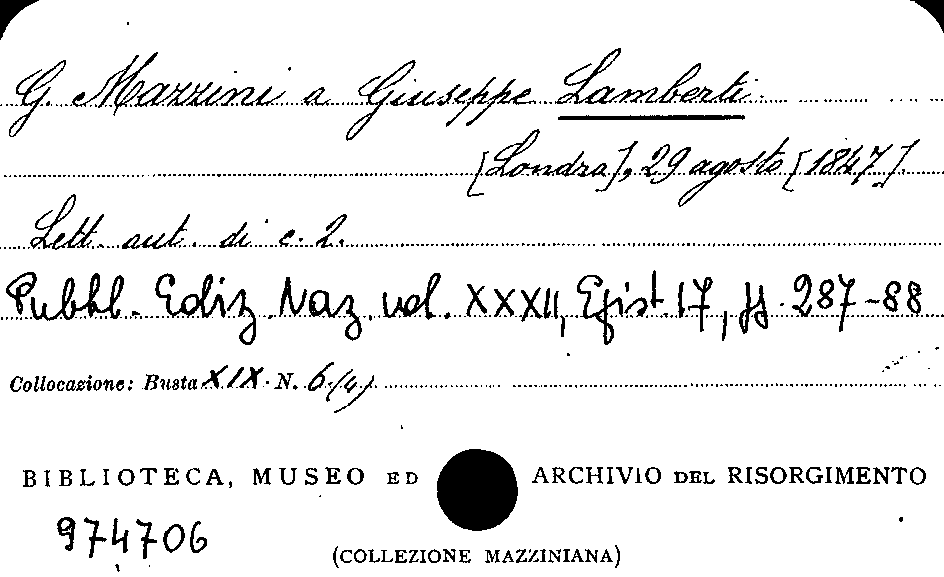 G. Mazzini a Giuseppe Lamberti
[Londra], 29 agosto [1847].
Lett. aut. di c. 2.
Pubbl. Ediz. Naz. vol. XXXII, Epist. 17, pp. 287-88
Collocazione: Busta XIX. N. 6/(4)
BIBLIOTECA, MUSEO ED ARCHIVIO DEL RISORGIMENTO
974706
(COLLEZIONE MAZZINIANA)